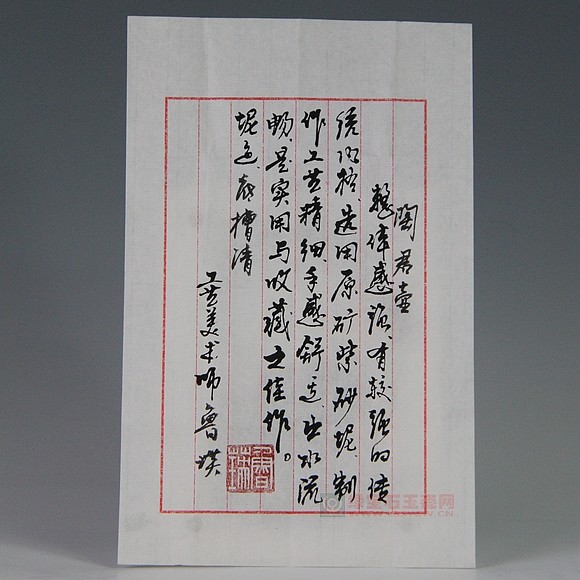 君壶
整体感强、有较强的传
统风格、选用原矿紫砂泥、制
作工艺精细、手感舒适、出水流
畅、是实用与收藏之佳作。
泥色、底槽清
工艺美术师鲁